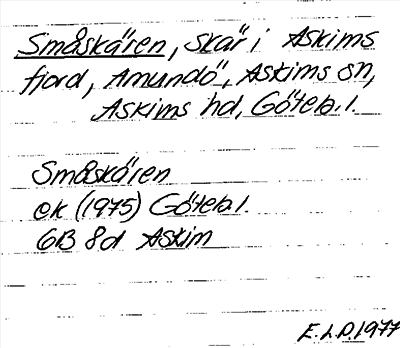 Småskären, skär i Askims
fjord, Amundö, Askims sn,
Askims hd, Göteb. l.
Småskären
ek (1975) Göteb l.
6B 8d Askim
E.L.P. 1977